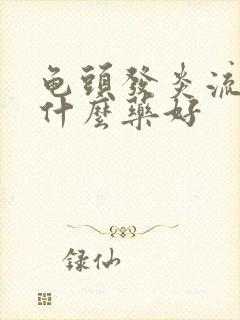 龟頭發炎流
什麼藥好
録仙